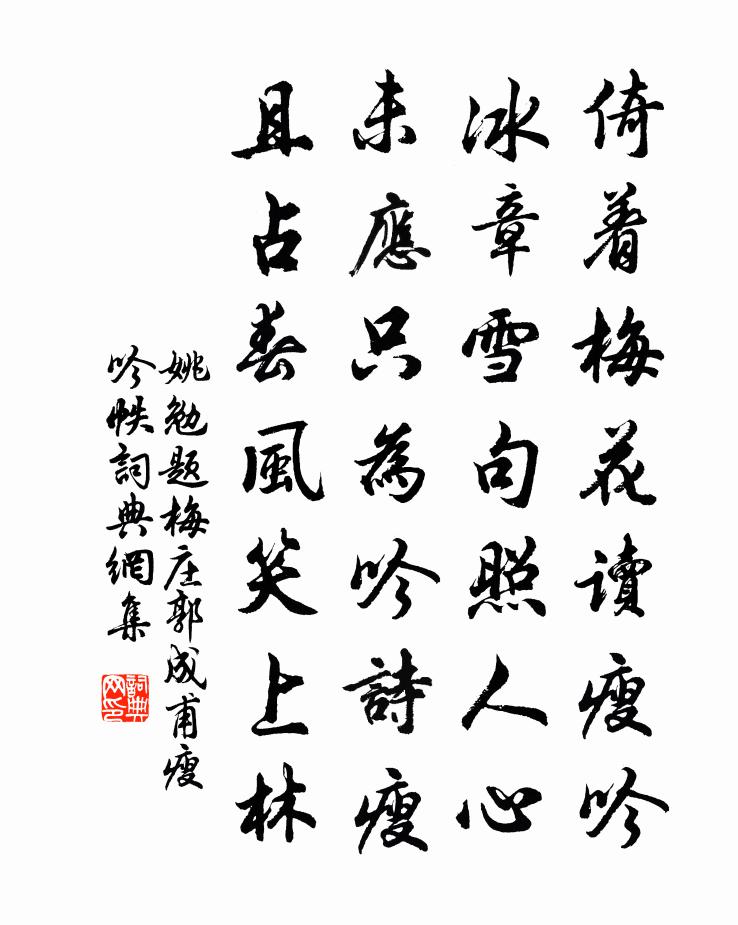 倚着梅花讀瘦吟
冰章雪句照人心
未應只為吟詩瘦
且占春風笑上林
姚勉題梅庄郭成甫瘦
吟帙詞典網集
詞典网印